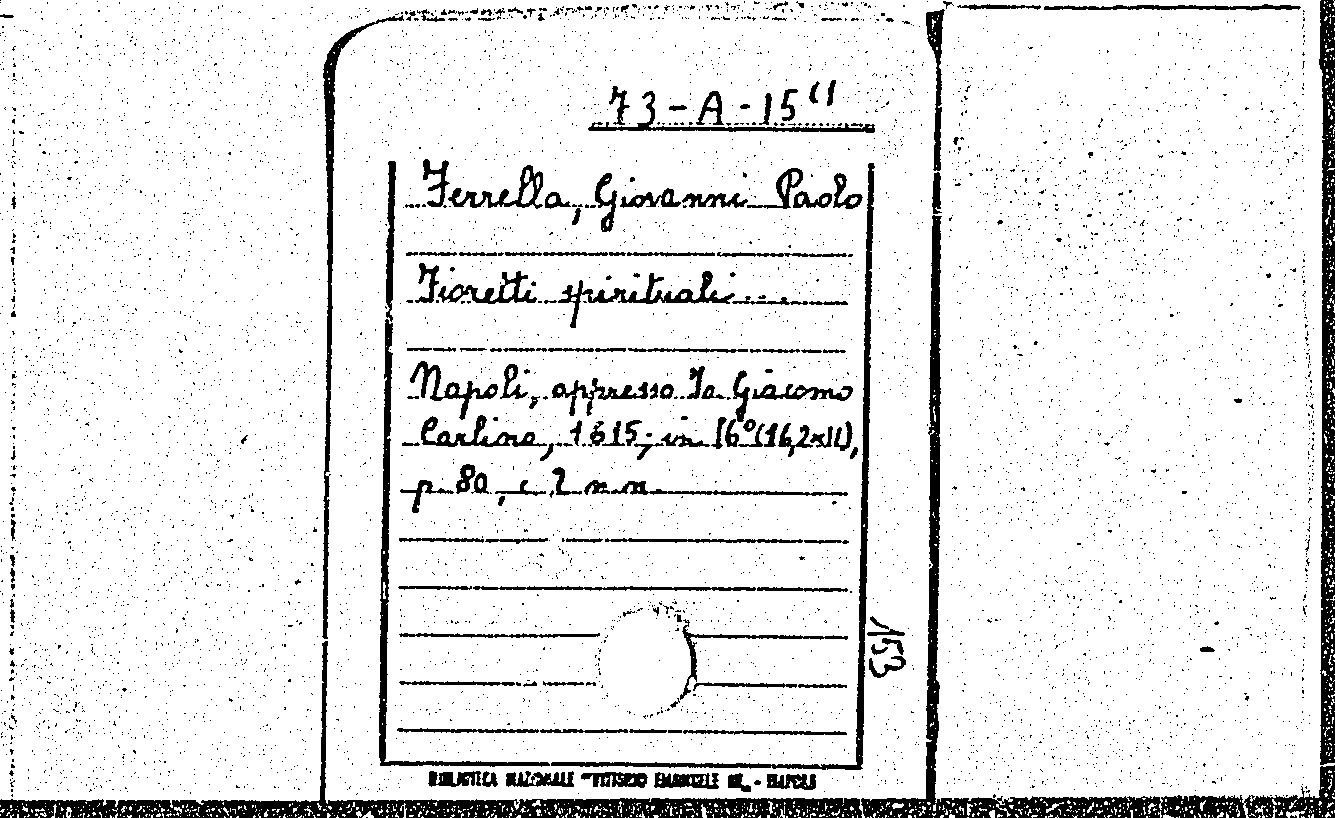 73-A-15 (1
Ferrella, Giovanni Paolo
Fioretti spirituali...
Napoli, appresso Io. Giacomo
Carlino, 1615; in 16° (16,2x11),
p. 80, c. 2 n.n.
153
BIBLIOTECA NAZIONALE "VITTORIO EMANUELE III„ - NAPOLI